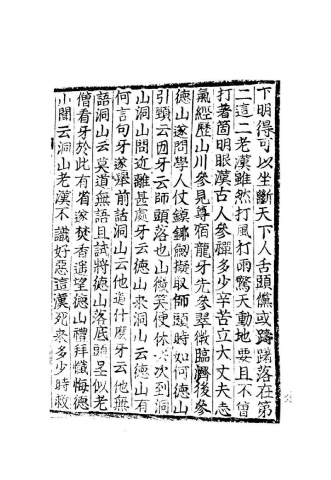 下明得可以坐斷天下人舌頭儻或躊躇落在第
二這二老漢雖然打風打雨驚天動地要且不曾
打著箇明眼漢古人參禪多少辛苦立大丈夫志
氣經歷山川參見尊宿龍牙先參翠微臨濟後參
德山遂問學人仗鏌鎁劒擬取師頭時如何德山
引頸云囡牙云師頭落也山微笑便休去次到洞
山洞山問近離甚處牙云德山來洞山云德山有
何言句牙遂舉前話洞山云他道什麼牙云他無
語洞山云莫道無語且試將德山落底頭呈似老
僧看牙於此有省遂焚香遙望德山禮拜懺悔德
山聞云洞山老漢不識好惡這漢死來多少時救